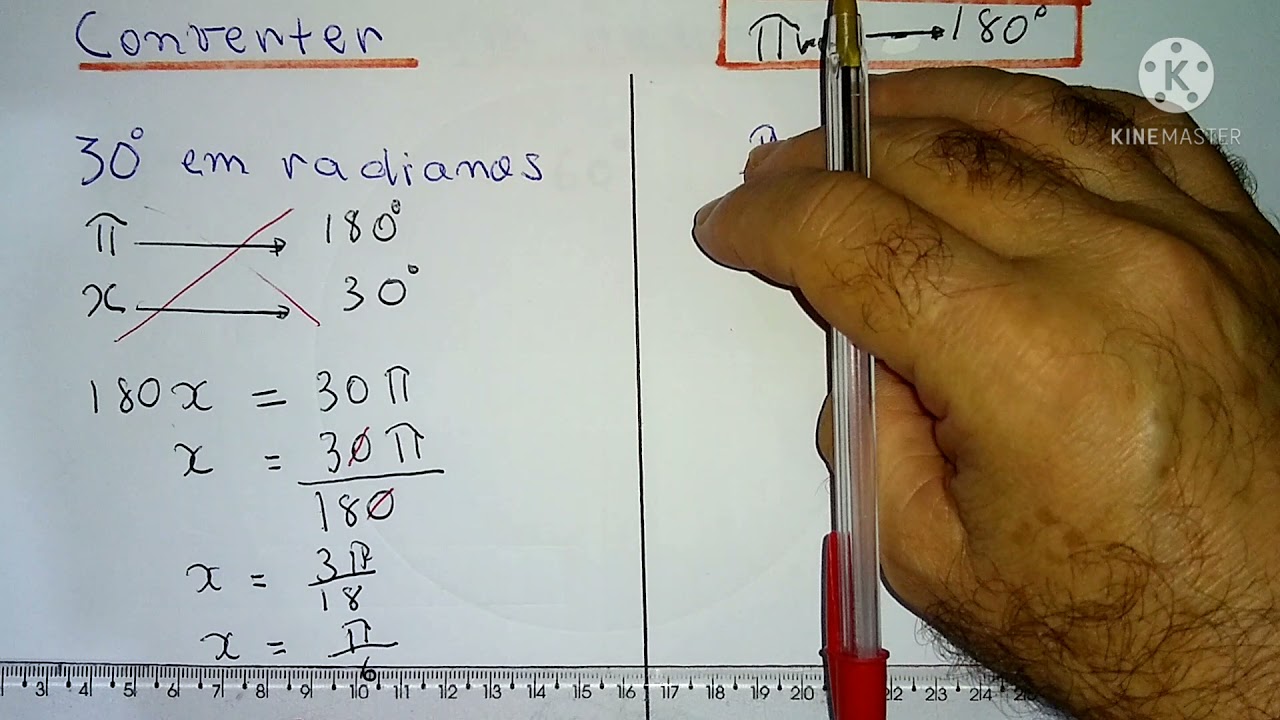 Converter
π → 180°
K
KINEMASTER
30° em radianos
π → 180°
x → 30°
180x = 30π
x = 30π / 180
x = 3π / 18
x = π / 6
3 4 5 6 7 8 9 10 11 12 13 14 15 16 17 18 19 20 22 23 24